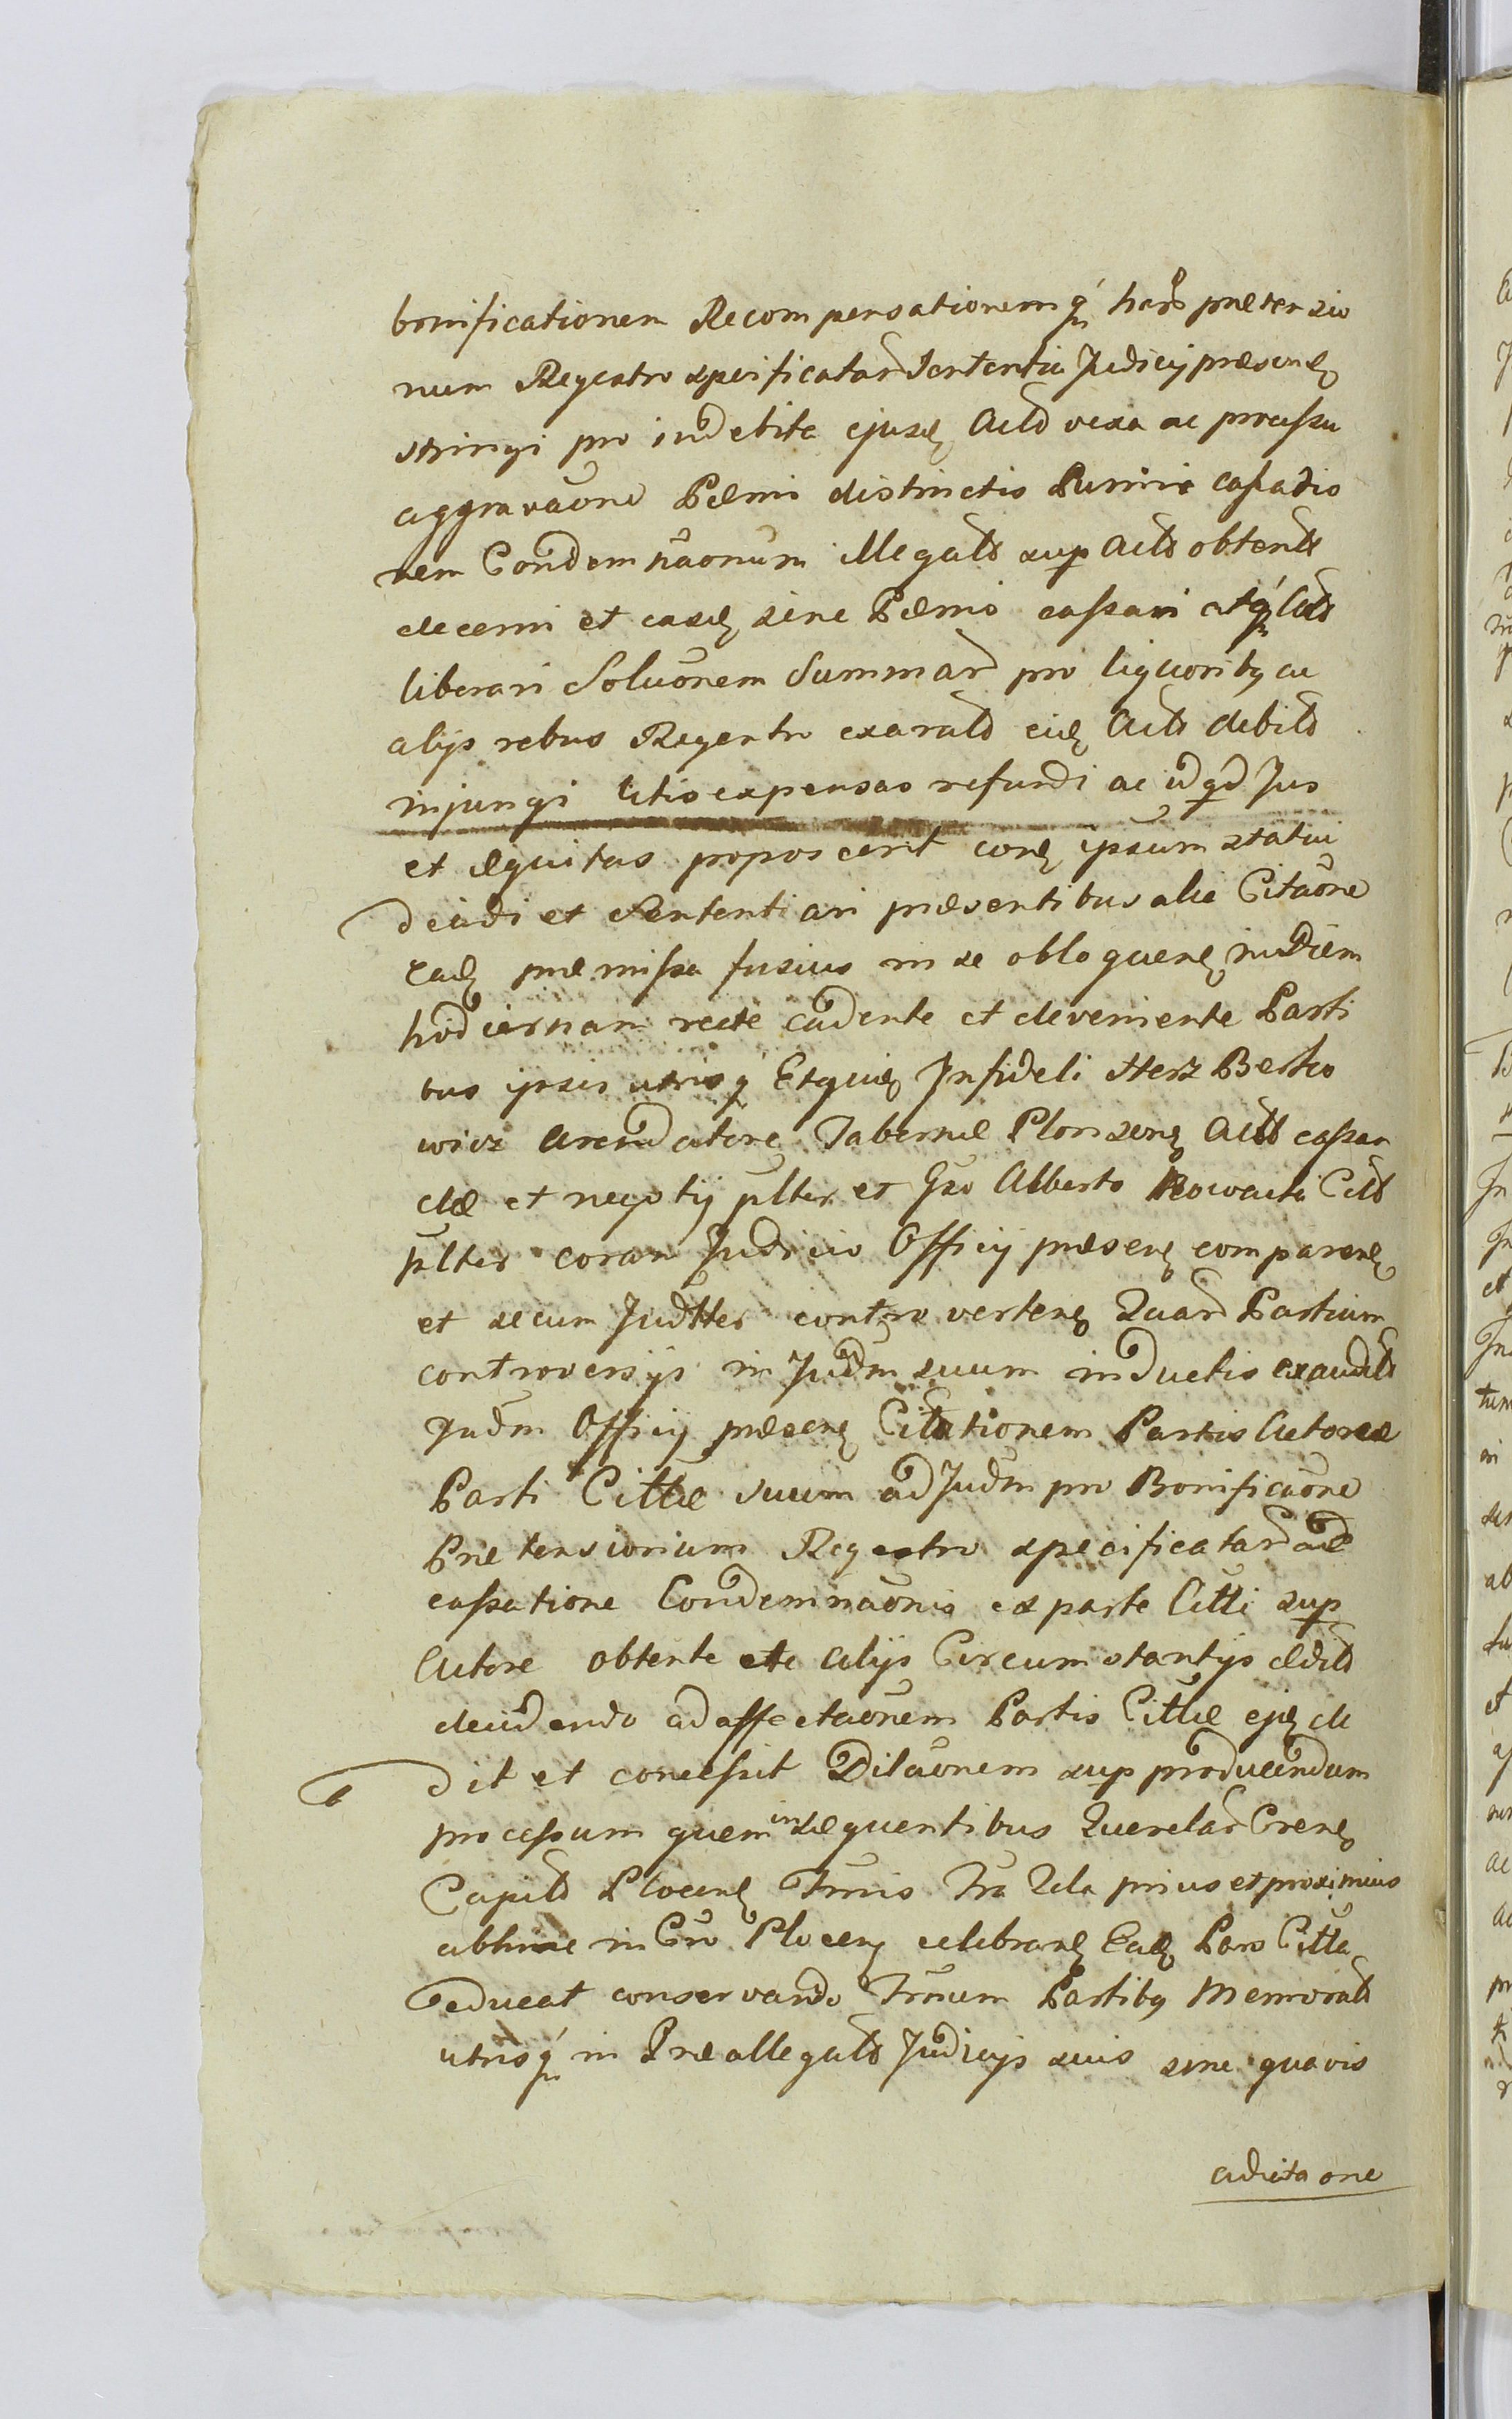 bonificationem Recompensationemq́ harũ prætensio
num Regestro specificatarũ Sententia Judicij præsenꝭ
stringi pro indebita ejusdꝭ Actõ vexa ac processu
aggravãone Pœnis distinctis Puniri cassatio
nem Condemnãonum illegałr sup Actõ obtentã
decerni et easdꝭ sine Pœnis cassari atq́ Actõ
liberari Solũonem Summarũ pro liquoribꝰ ac
alijs rebus Regestro exaratõ eidꝭ Actõ debitõ
injungi litis expensas refundi ac id qd Jus
et æquitas poposcerit conꝭ ipsum statui
decidi et Sententiari præsentibus alia Citãone
eadꝭ præmissa fusius in se obloquenꝭ in diem
hodiernam recte cadente et deveniente Parti
bus ipsis utrisq́ Etquidꝭ Infideli Herz Berko
wicz Arendatore Tabernæ Plonsenꝭ Actõ
et negotij p̃lter et Gso Alberto Nowacki Citõ
p̃lter coram Judicio Officij præsenꝭ comparenꝭ
et secum Judłter controvertenꝭ Quarũ Partium
controversijs in Judm̃ suum inductis exauditõ
Judm̃ Officij præsenꝭ Citationem Partis Actoreæ
Parti Cittæ suum ad Judm̃ pro Bonificãone
Prætensionum Regestro specificatarũ ac
cassatione Condemnãonis ex parte Citti sup
Actore obtente etc alijs Circumstantijs editõ
decidendo ad affectãonem Partis Cittæ ejꝭ de
dit et concessit Dilãonem sup producendum
processum quem in sequentibus Querelarũ Crenꝭ
Capitõ Plocenꝭ Trm̃is Fra 2da prius et proximius
abhinc in Cro Plocenꝭ celebranꝭ Eadꝭ Pars Citta
educat conservando Trm̃um Partibꝰ Memoratõ
utrisq́ in Præallegatõ Judicijs suis sine quavis
adcitaone